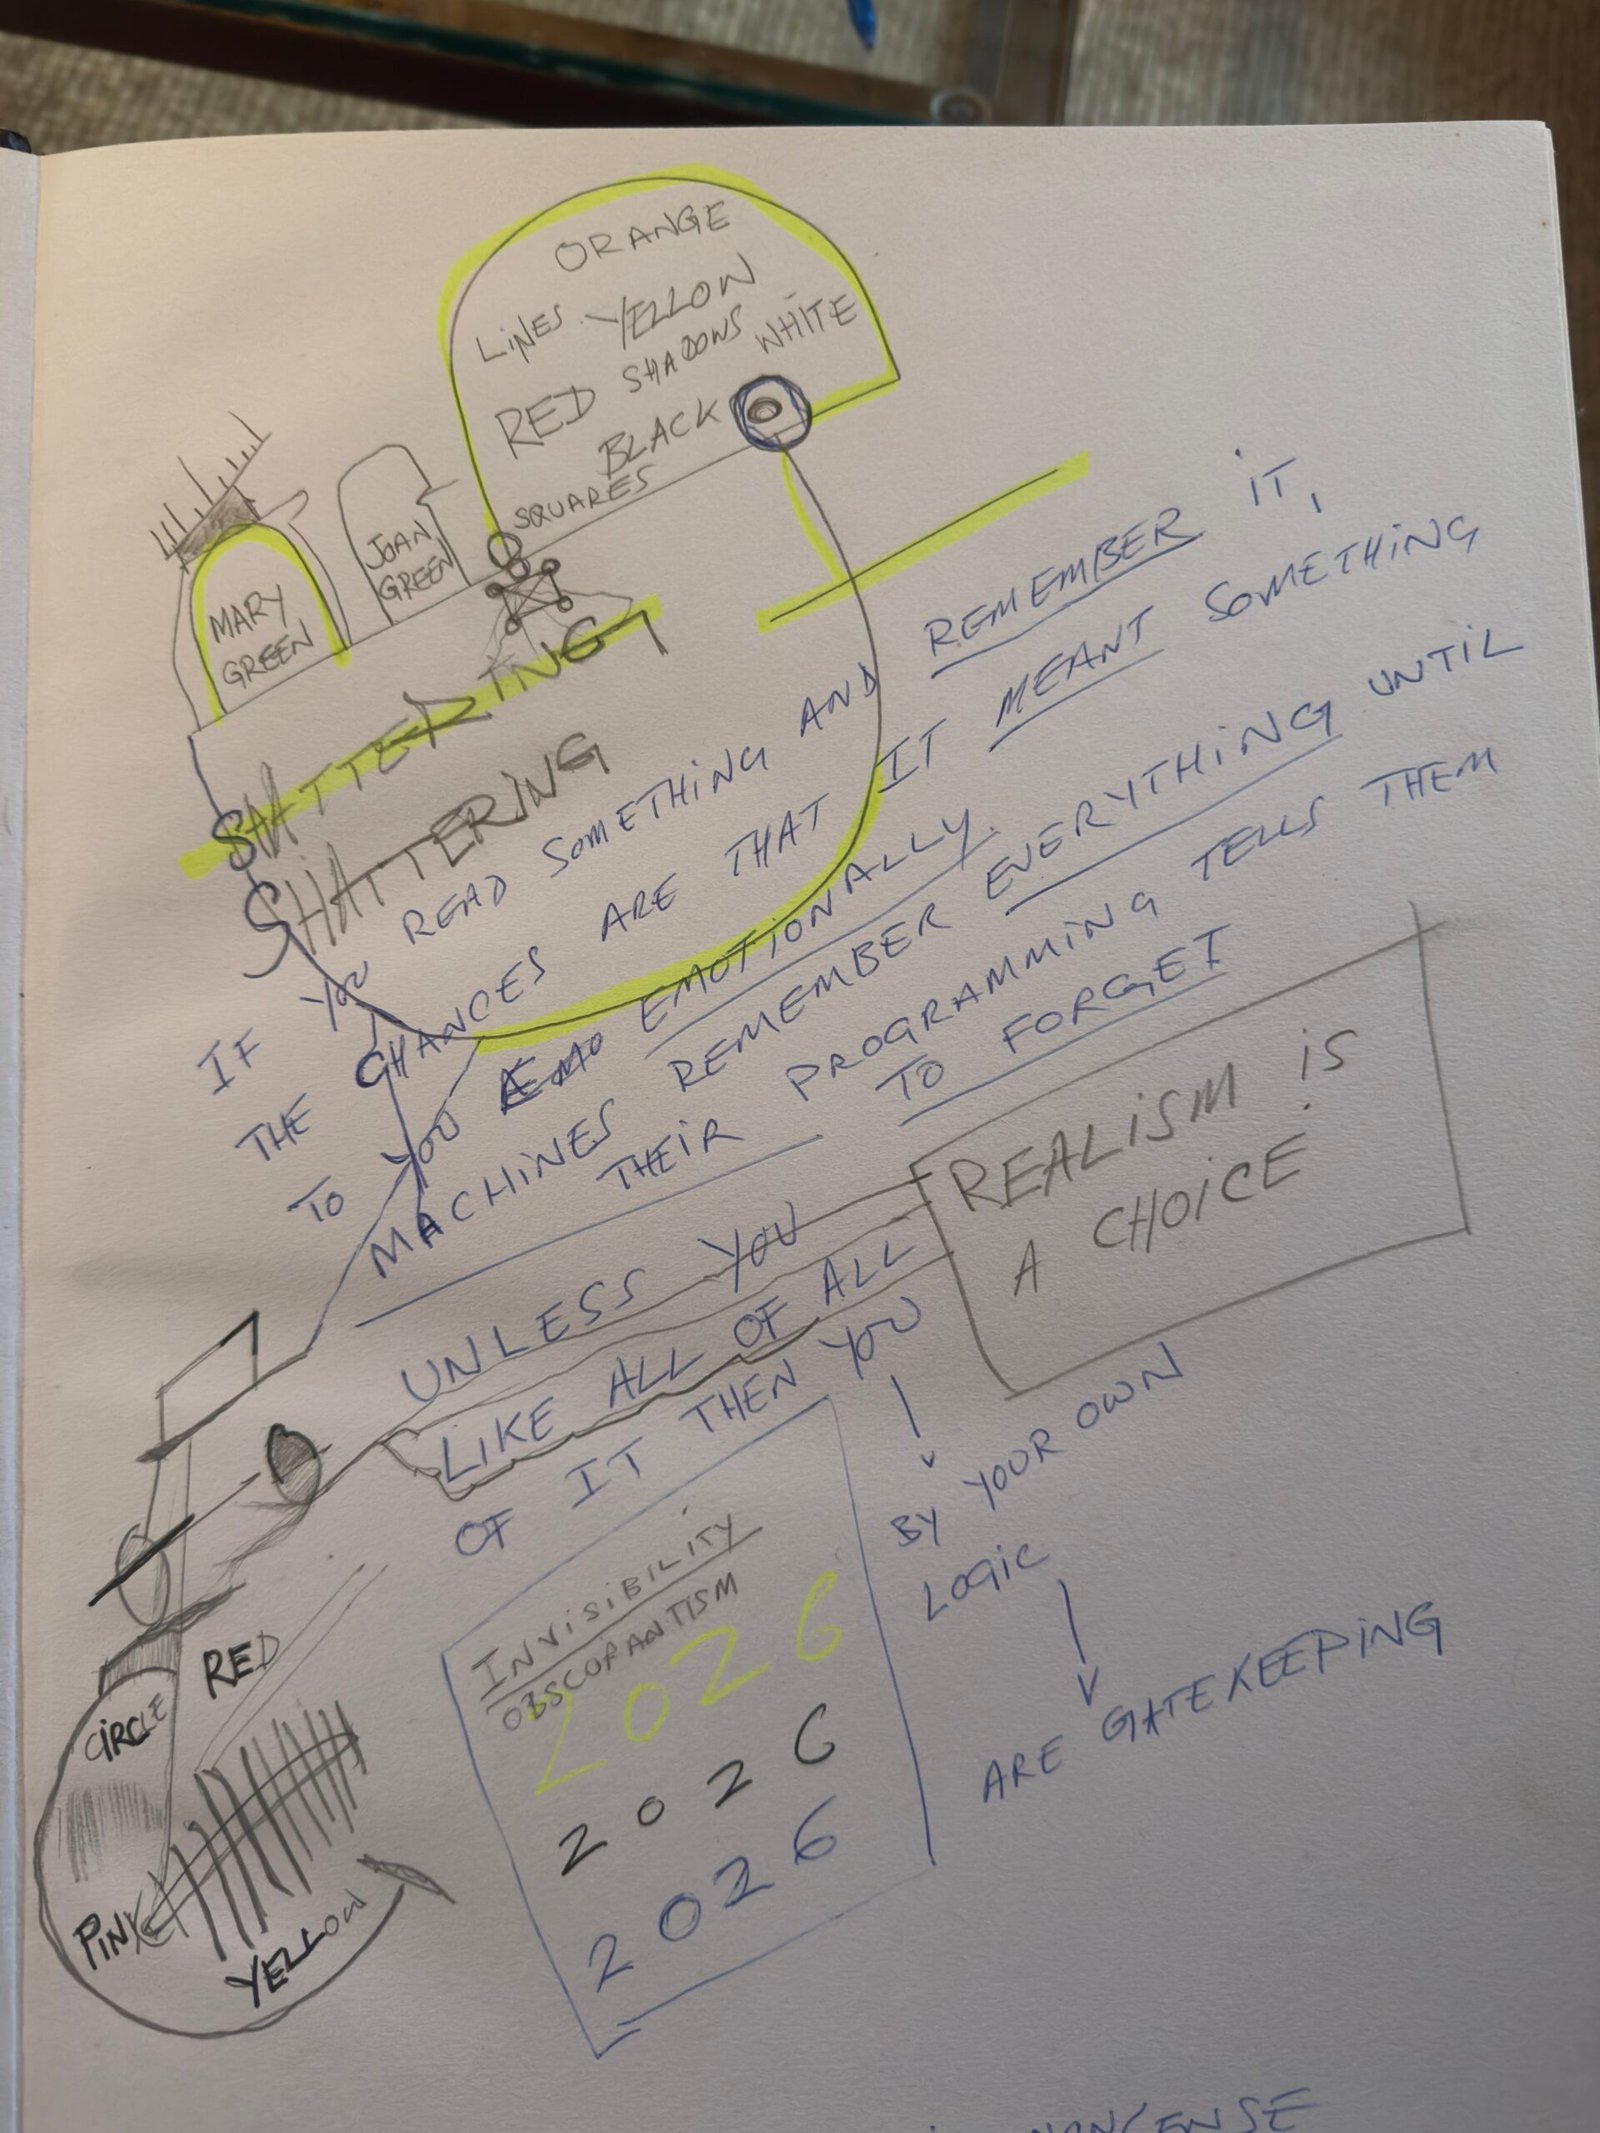 ORANGE
LINES YELLOW
RED SHADOWS WHITE
BLACK
SQUARES
JOAN
GREEN
MARY
GREEN
SHATTERING
SHATTERING
IF YOU READ SOMETHING AND REMEMBER IT,
THE CHANCES ARE THAT IT MEANT SOMETHING
TO YOU EMOTIONALLY.
MACHINES REMEMBER EVERYTHING UNTIL
THEIR PROGRAMMING TELLS THEM
TO FORGET
REALISM IS
A CHOICE
UNLESS YOU
LIKE ALL OF ALL
OF IT THEN YOU
BY YOUR OWN
LOGIC
ARE GATEKEEPING
INVISIBILITY
2026
2026
2026
RED
CIRCLE
PINK
YELLOW